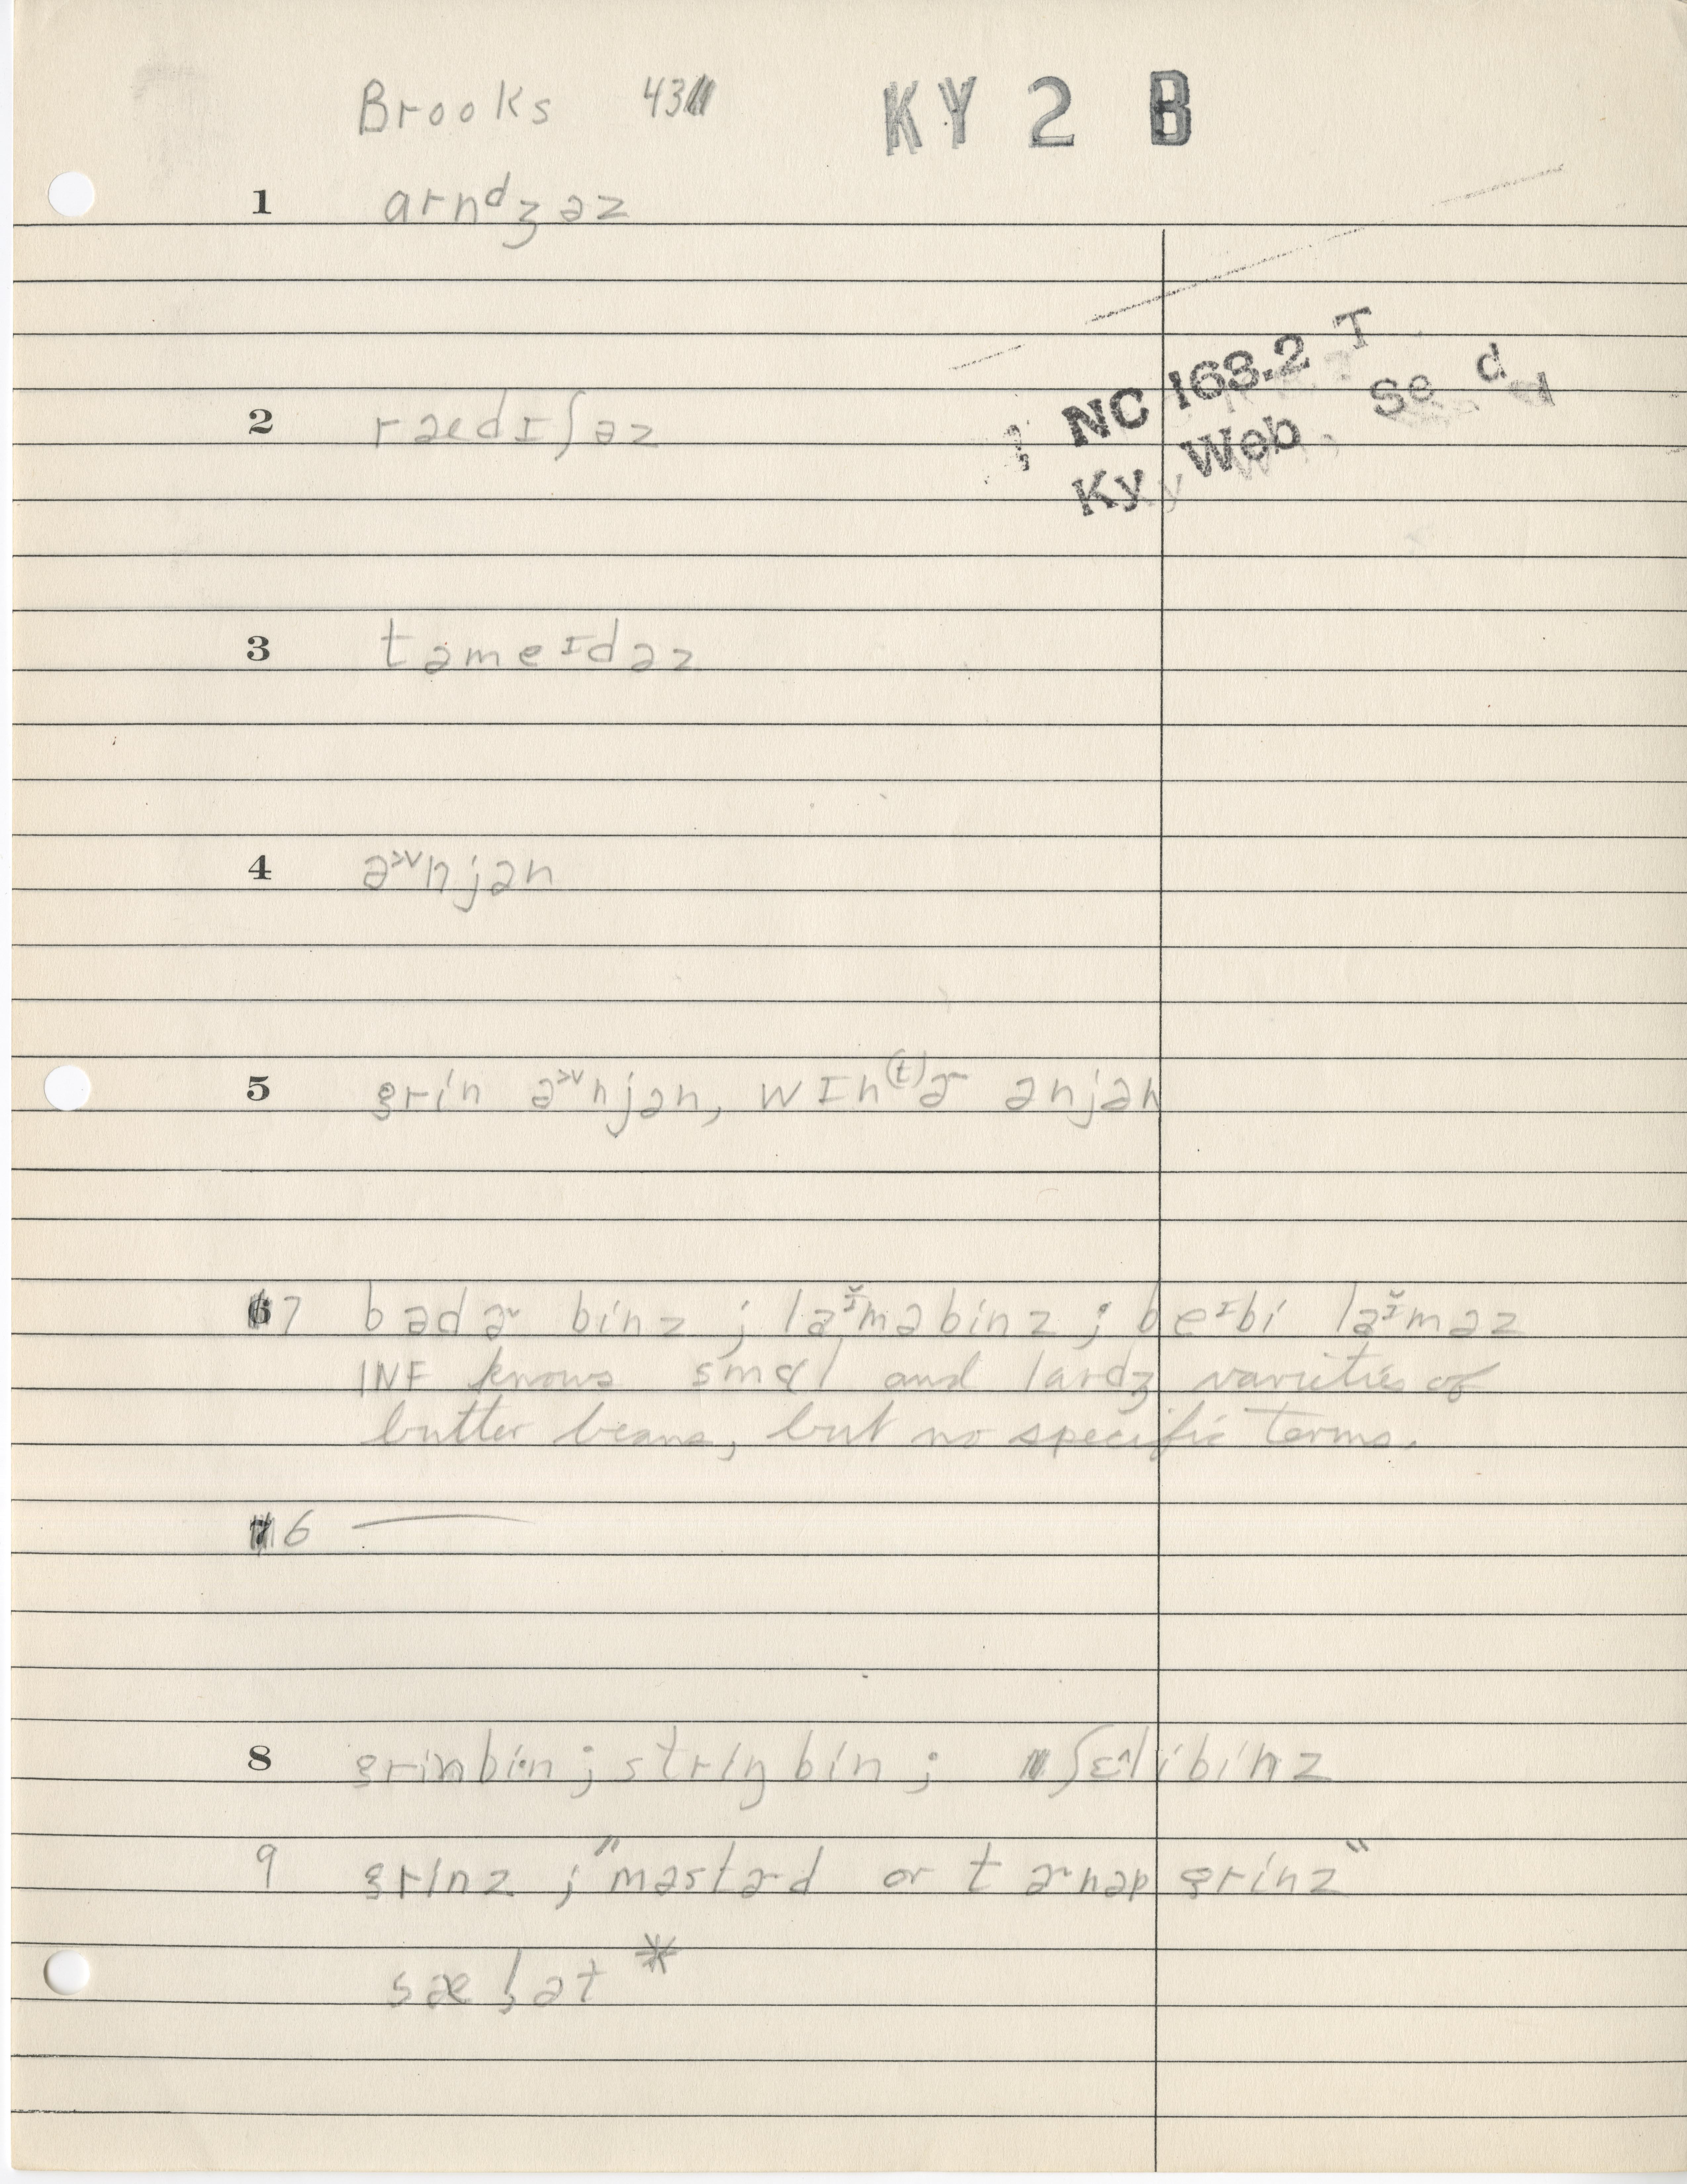 Brooks 43 KY 2 B
1 arnᵈʒəz
NC 168.2 T
2 rædɪʃəz
Ky Web, Se d
3 təmeᶦdəz
4 ə˃˅njən
5 grin ə˃˅njən, wɪn⁽ᵗ⁾ɚ ənjən
7 bədɚ binz ; laᶦ̆məbinz ; beᶦbi laᶦ̆məz
INF knows smɑl and lardʒ varieties of
butter beans, but no specific terms.
6 ——
8 grinbin ; striŋbin ; ʃɛ^libinz
9 grinz ; "məstɚd or tɚnəp grinz"
sæl̥ət *